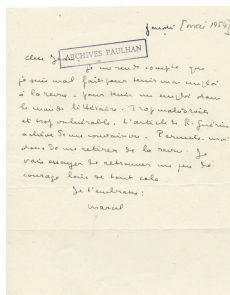 jeudi [mai 1954]
cher Jean,
ARCHIVES PAULHAN
je me rends compte que
je suis mal fait pour tenir un emploi
à la revue, pour tenir un emploi dans
le monde littéraire. Trop maladroit
et trop vulnérable. L'article de R. Guérin
achève de me convaincre. Permets-moi
donc de me retirer de la revue. Je
vais essayer de retrouver un peu de
courage loin de tout cela.
Je t'embrasse :
Marcel